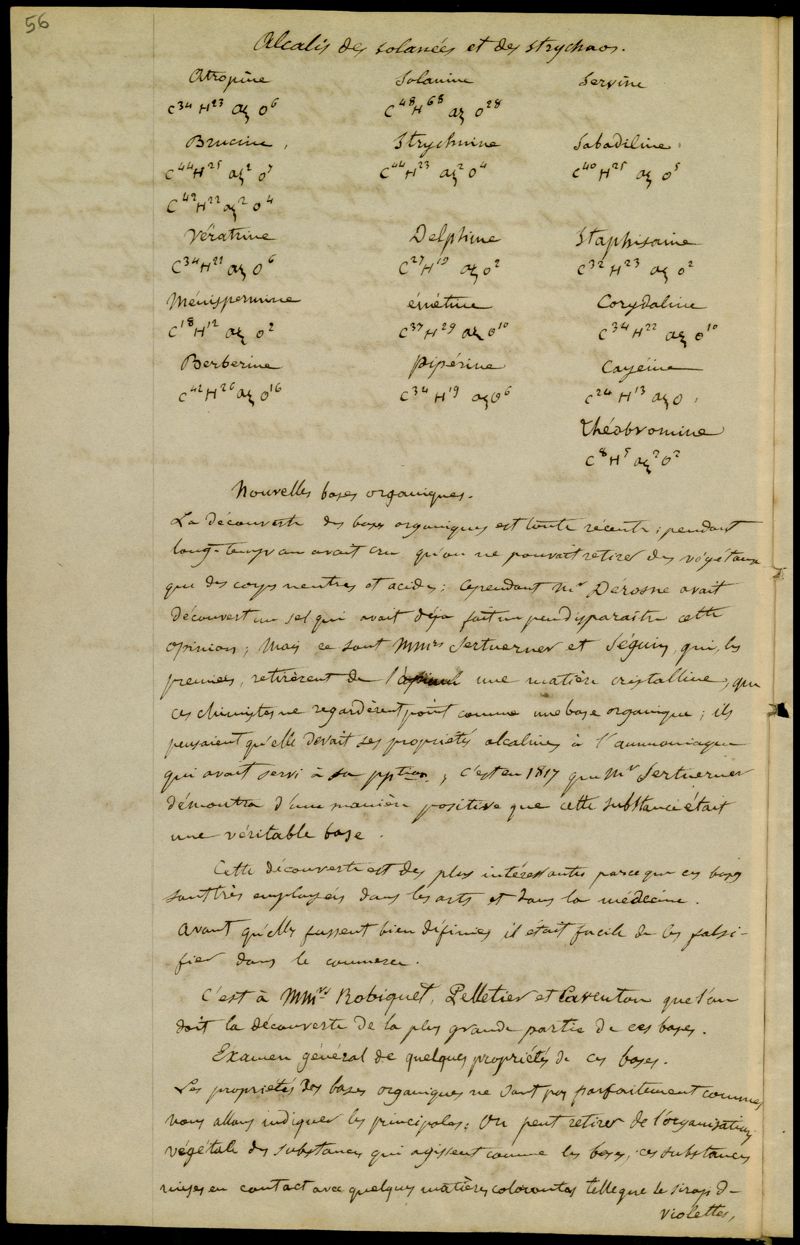 56
Alcalis des solanées et des strychnos.
Atropine Solanine Servine
C34 H23 az O6 C48 H68 az O28
Brucine, Strychnine Sabadiline,
C44 H25 az2 O7 C44 H23 az2 O4 C40 H25 az O5
C42 H22 az2 O4
Vératrine Delphine Staphisaine
C34 H21 az O6 C27 H19 az O2 C32 H23 az O2
Ménispermine émétine Corydaline
C18 H12 az O2 C37 H29 az O10 C34 H22 az O10
Berberine pipérine Caféïne
C42 H26 az O16 C34 H19 az O6 C24 H13 az O,
théobromine
C8 H5 az2 O2
Nouvelles bases organiques.
La découverte des bases organiques est toute récente; pendant
long-temps on avait cru qu'on ne pouvait retirer des végétaux
que des corps neutres et acides; Cependant Mr Derosne avait
découvert un sel qui avait déja fait un peu disparaitre cette
opinion; Mais ce sont MMrs Sertuerner et Séguin, qui, les
premiers, retirèrent de l'opium une matière cristalline, que
ces chimistes ne regardèrent point comme une base organique; ils
pensaient qu'elle devait ses propriétés alcalines à l'ammoniaque
qui avait servi à sa pption; c'est en 1817 que Mr Sertuerner
démontra d'une manière positive que cette substance était
une véritable base.
Cette découverte est des plus intéressantes parce que ces bases
sont très employées dans les arts et dans la médecine.
Avant qu'elles fussent bien définies il était facile de les falsi-
fier dans le commerce.
C'est à MMrs Robiquet, Pelletier et Caventou que l'on
doit la découverte de la plus grande partie de ces bases.
Examen général de quelques propriétés de ces bases.
Les propriétés des bases organiques ne sont pas parfaitement connues
nous allons indiquer les principales; On peut retirer de l'organisation
végétale des substances qui agissent comme les bases, ces substances
mises en contact avec quelques matières colorantes telle que le sirop de
violettes,